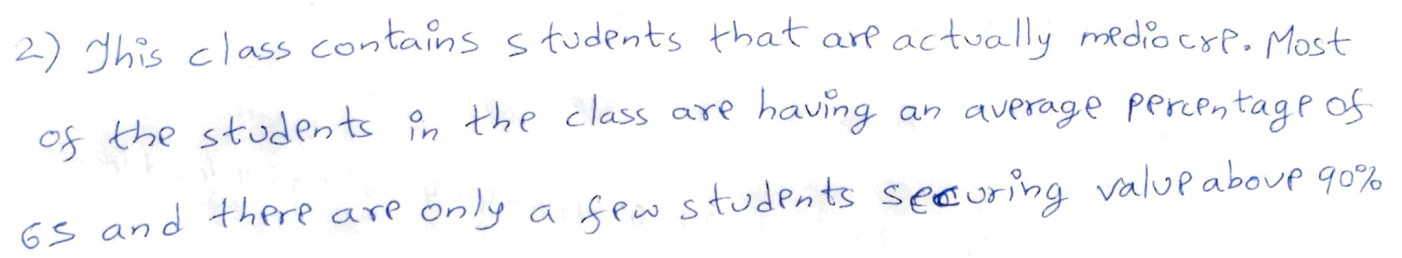 2) This class contains students that are actually mediocre. Most
of the students in the class are having an average percentage of
65 and there are only a few students securing value above 90%